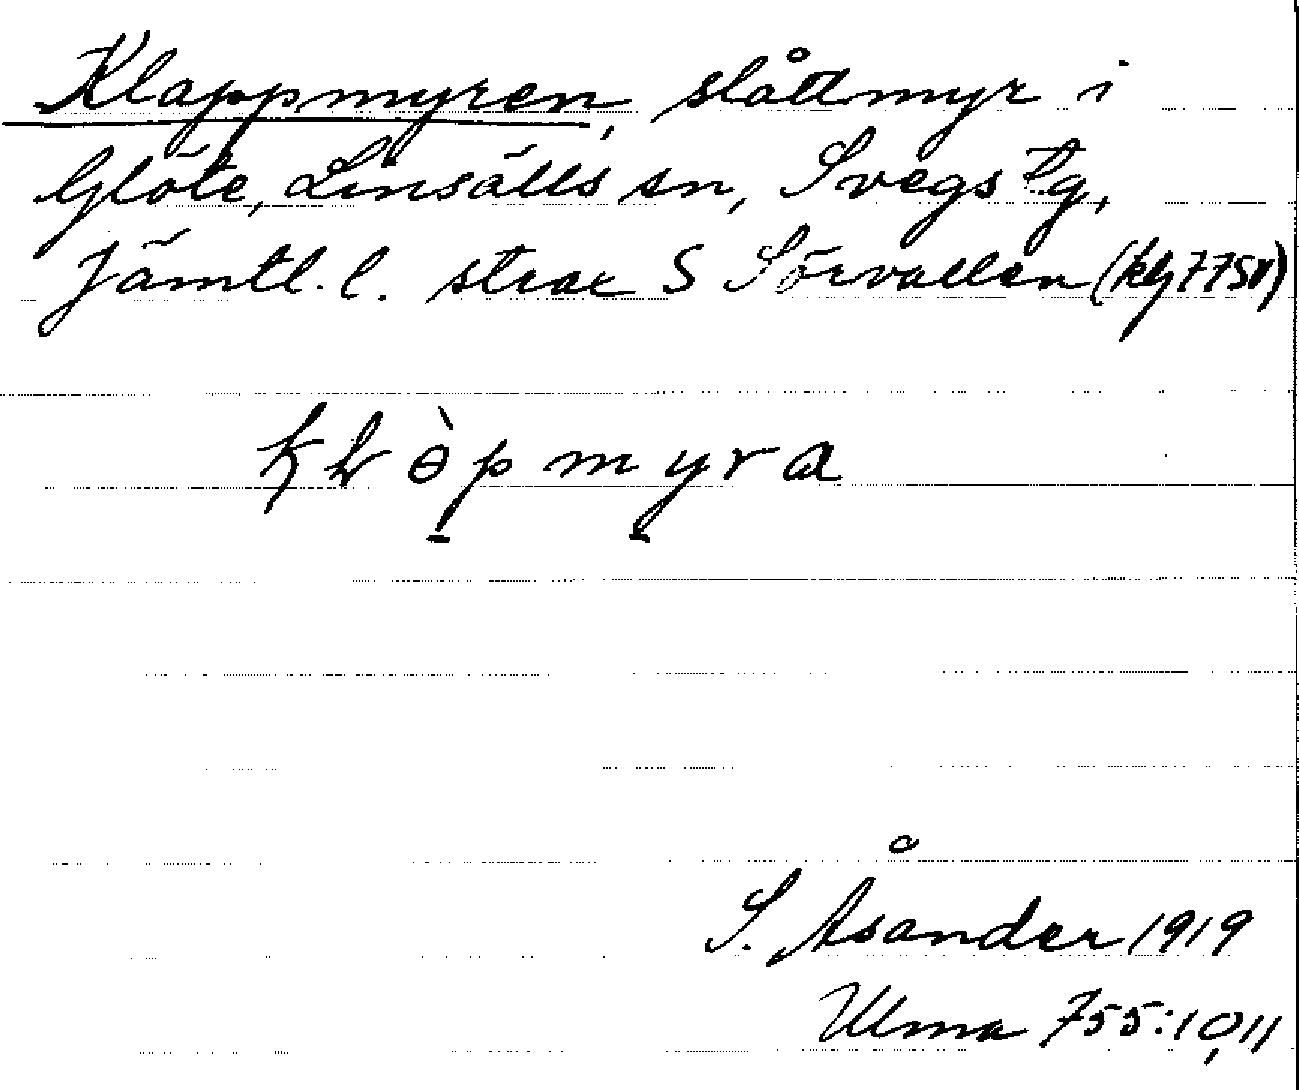 Klappmyren, slåttmyr i
Glöte, Linsälls sn, Svegs tg,
Jämtl. l. strax S Sörvallen (klj 7750)
kļɵ̀pmyra
S. Åsander 1919
Ulma 755:10,11